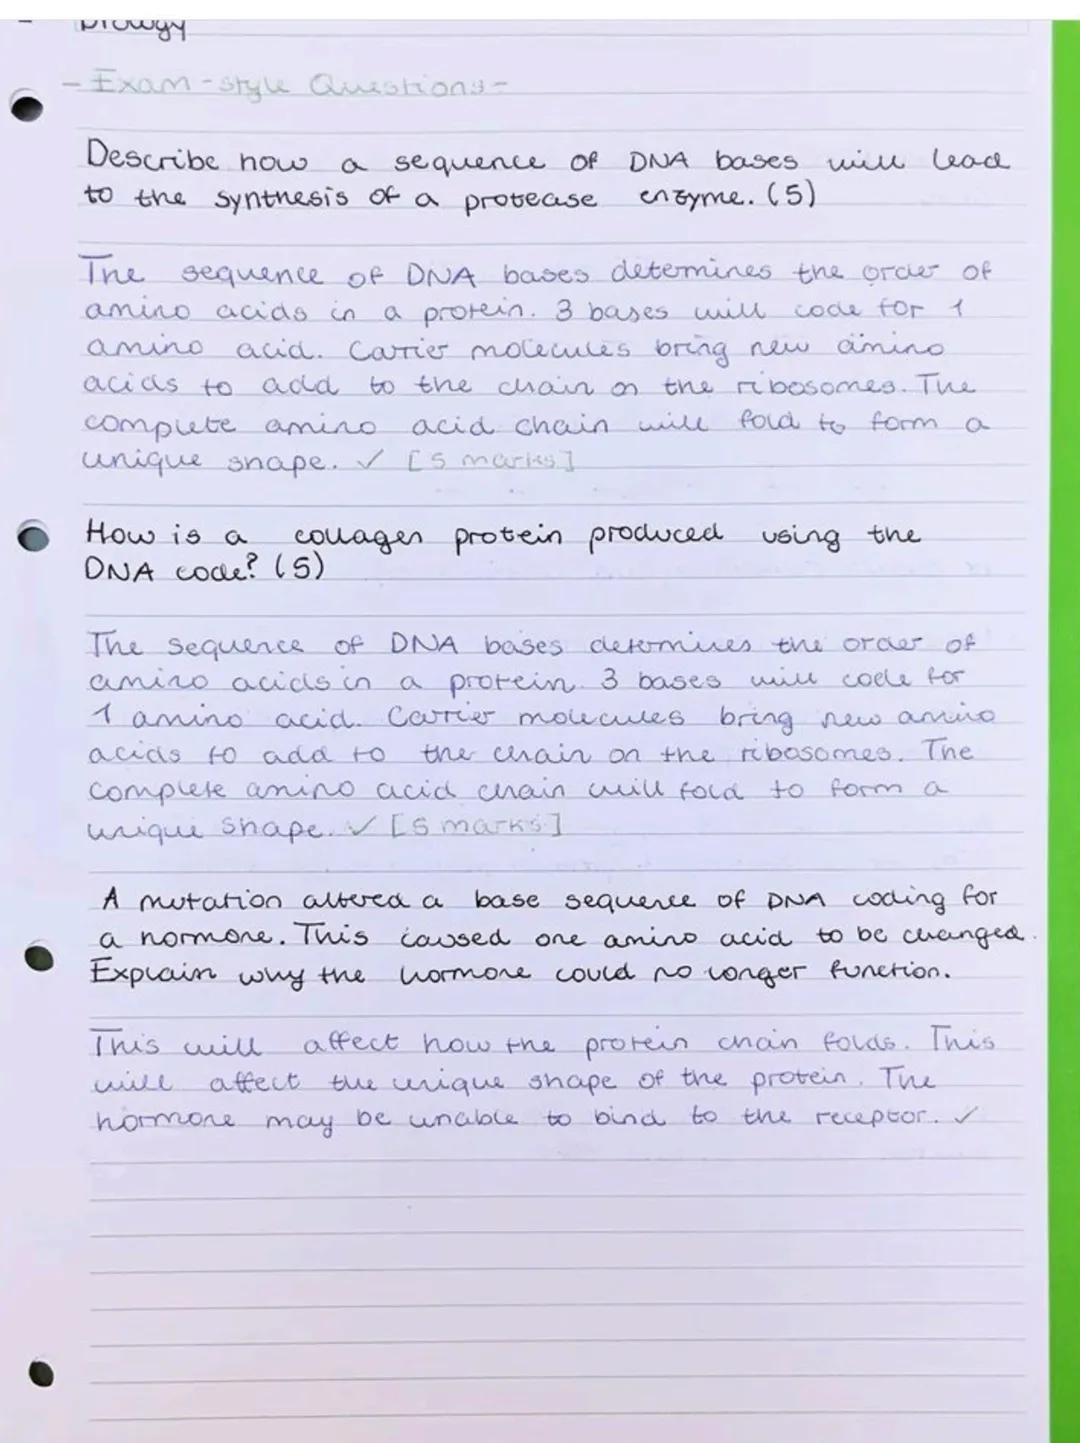 Biology
- Exam-style Questions -
Describe how a sequence of DNA bases will lead
to the synthesis of a protease enzyme. (5)
The sequence of DNA bases determines the order of
amino acids in a protein. 3 bases will code for 1
amino acid. Carrier molecules bring new amino
acids to add to the chain on the ribosomes. The
complete amino acid chain will fold to form a
unique shape. ✓ [5 marks]
How is a collagen protein produced using the
DNA code? (5)
The sequence of DNA bases determines the order of
amino acids in a protein. 3 bases will code for
1 amino acid. Carrier molecules bring new amino
acids to add to the chain on the ribosomes. The
complete amino acid chain will fold to form a
unique shape. ✓ [5 marks]
A mutation altered a base sequence of DNA coding for
a hormone. This caused one amino acid to be changed.
Explain why the hormone could no longer function.
This will affect how the protein chain folds. This
will affect the unique shape of the protein. The
hormone may be unable to bind to the receptor. ✓